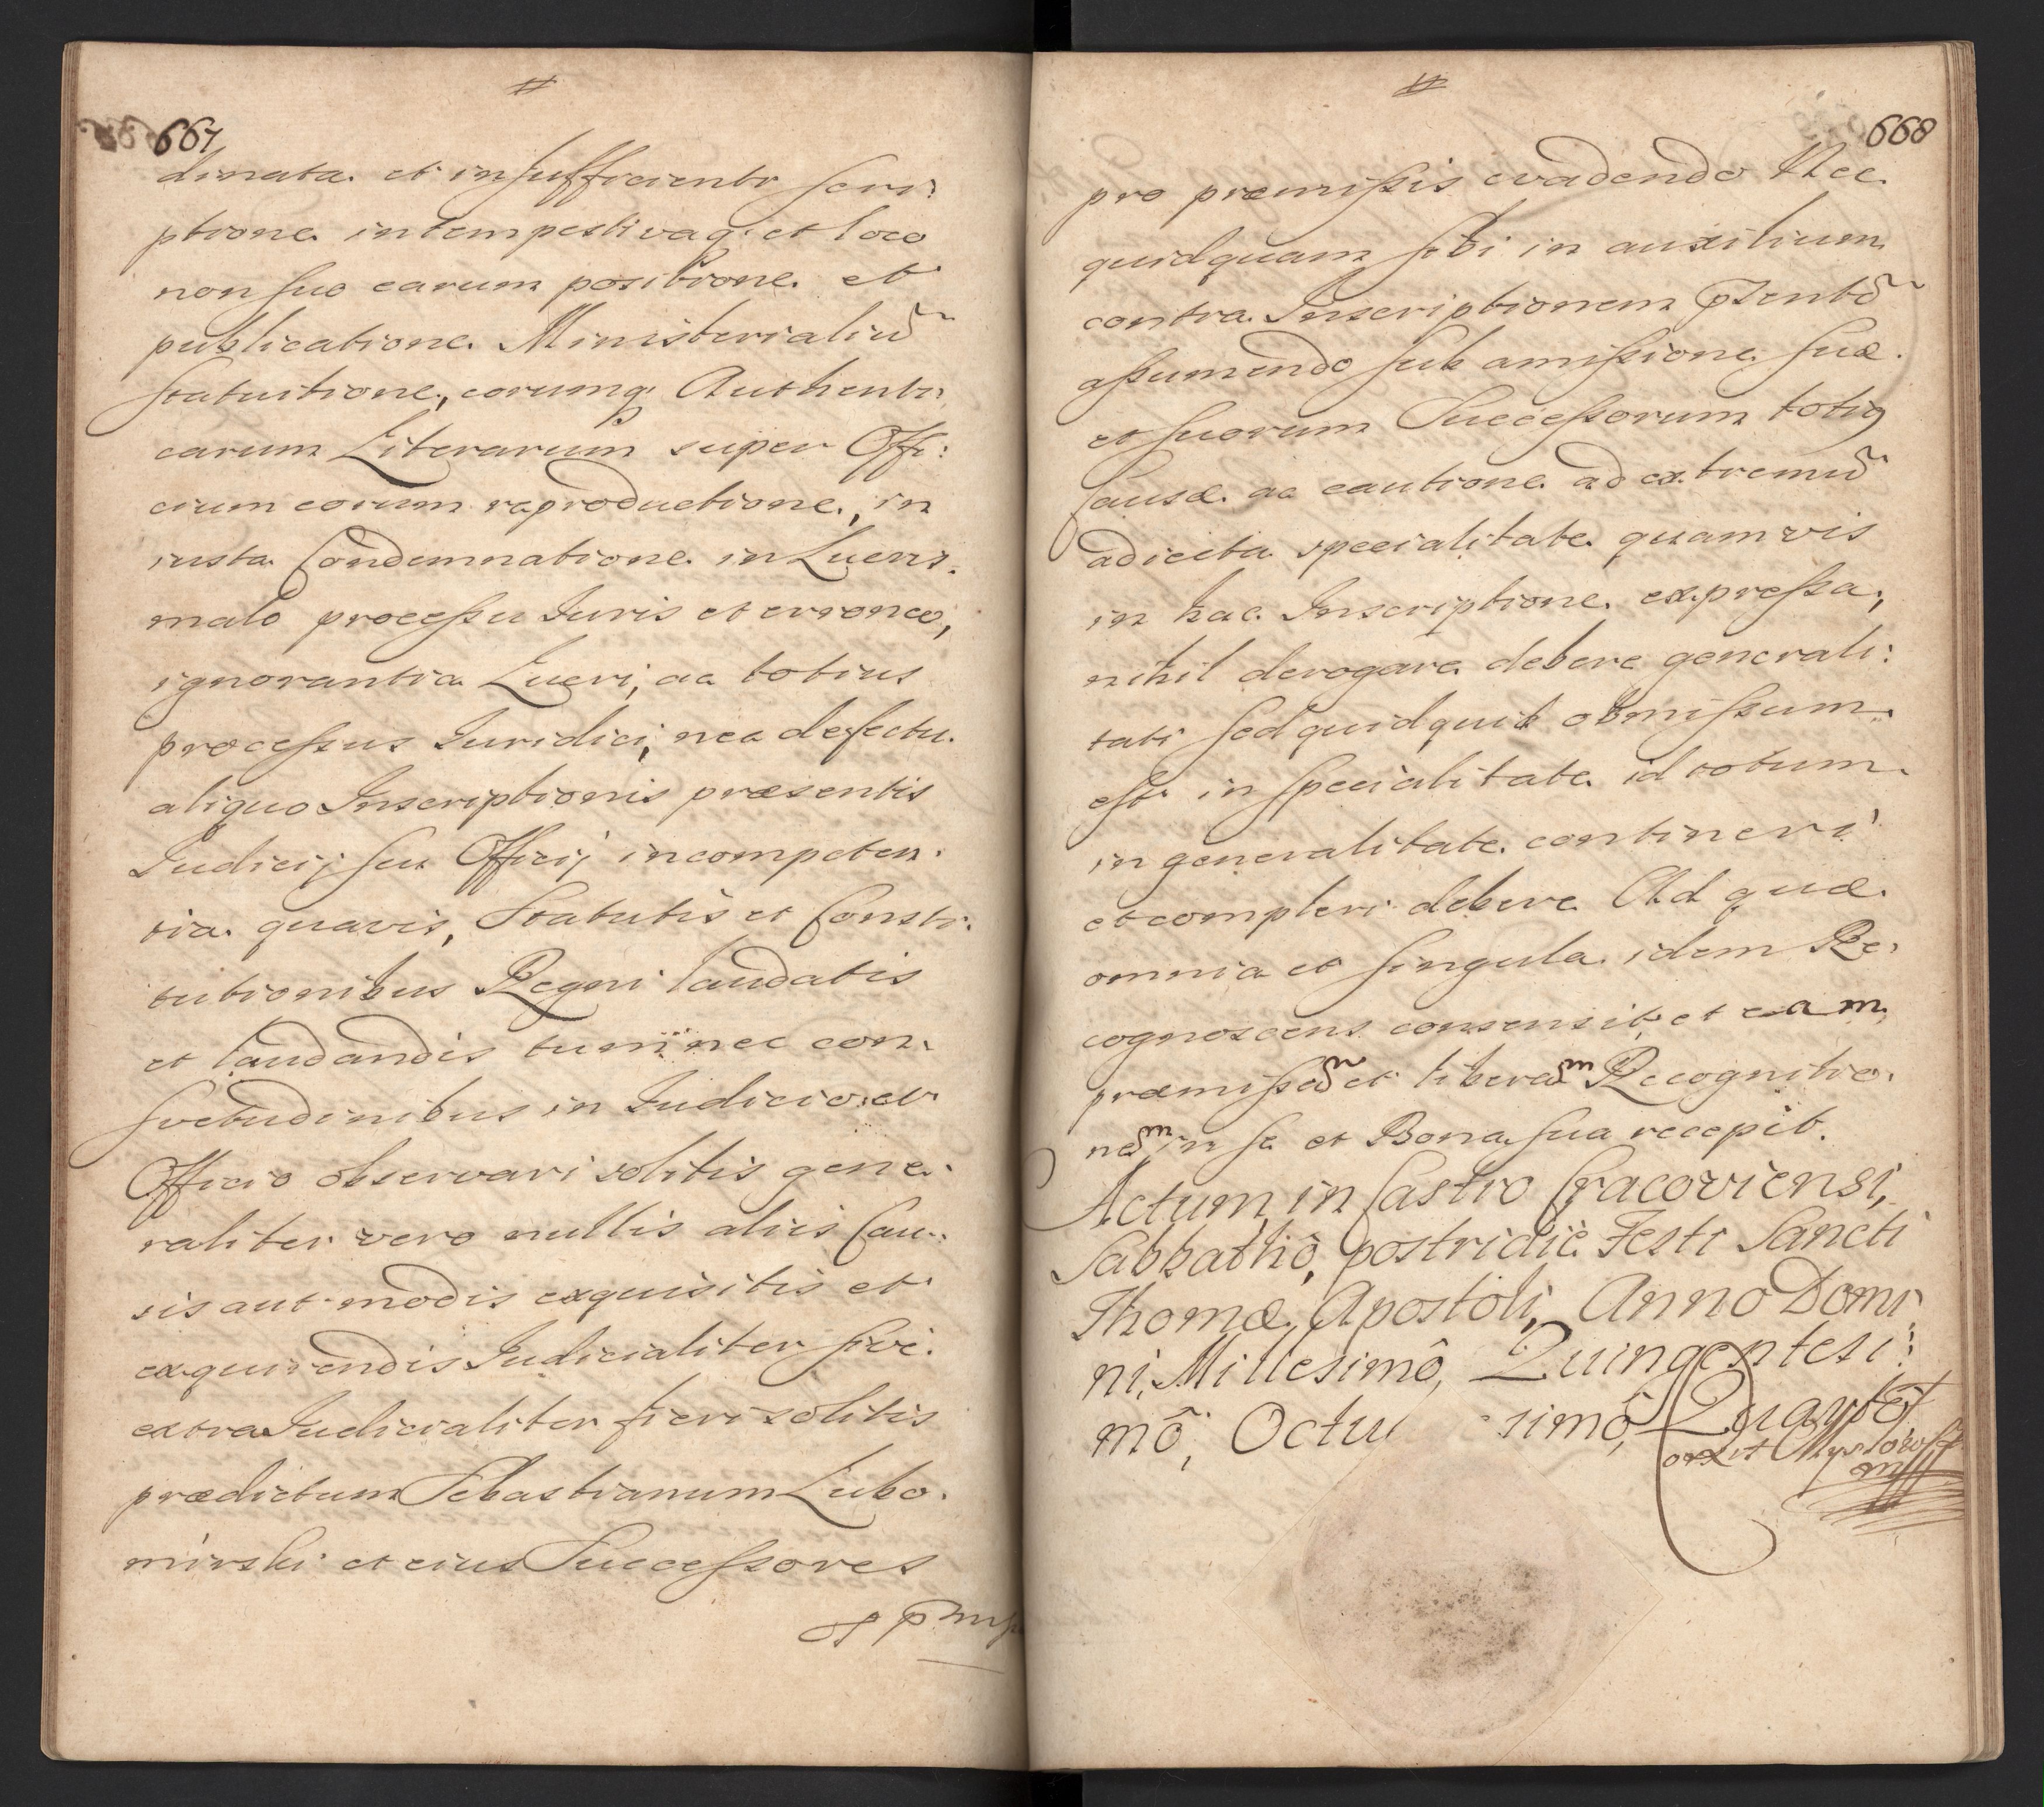 #
667
dinata et insufficienti scri:
ptione intempestivaq: et loco
non suo earum positione et
publicatione Ministerialiũ
statuitione, eorumq Authenti:
carum Literarum super Offi:
cium eorum reproductione, in
iusta Condemnatione in Lucris.
malo processu Iuris et erroneo,
ignorantia Lucri, ac totius
processus Iuridici, nec defectu
aliquo Inscriptionis præsentis
Iudicij seu Officij incompeten:
tia quavis, Statutis et Consti:
tutionibus Regni laudatis
et laudandis tum nec con:
svetudinibus in Iudicio et
Officio observari solitis gene:
raliter vero nullis aliis Cau:
sis aut modis exquisitis et
exquirendis Iudicialiter sive
extraJudicialiter fieri solitis
prædictum Sebastianum Lubo:
mirski et eius Successores
#
668
pro præmissis evadendo Nec
quidquam sibi in auxilium
contra Inscriptionem pñtem
assumendo sub amissione suæ
et suorum Successorum totiq
Causæ ac cautione ad extremũ
adiecta specialitate quamvis
in hac Inscriptione expressa,
nihil derogare debere generali:
tati sed quidquid obmissum
est in specialitate id totum
in generalitate contineri
et compleri debere Ad quæ
omnia et singula idem Re:
cognoscens consensit, et eam
præmissam et liberam Recognitio:
nem in se et Bona sua recepit.
Actum in Castro Cracoviensi,
Sabbathô, postridiè Festi Sancti
Thomæ Apostoli, Anno Domi
ni, Millesimô, Quingentesi:
mô, Octu simô, Quarto